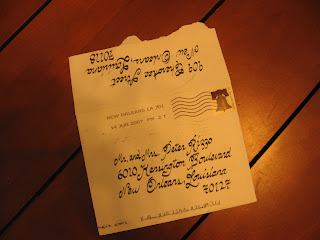 Cherokee Street
New Orleans, Louisiana
70118
NEW ORLEANS LA 701
14 AUG 2007 PM 2 T
Mr. and Mrs. Peter Rizzo
6010 Kensington Boulevard
New Orleans, Louisiana
70127